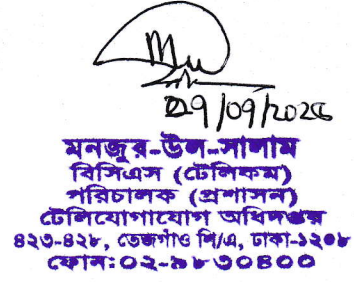 29/09/2025
মনজুর-উল-সালাম
বিসিএস (টেলিকম)
পরিচালক (প্রশাসন)
টেলিযোগাযোগ অধিদপ্তর
৪২৩-৪২৮, তেজগাঁও শি/এ, ঢাকা-১২০৮
ফোন:০২-৯৮৩০৪০০